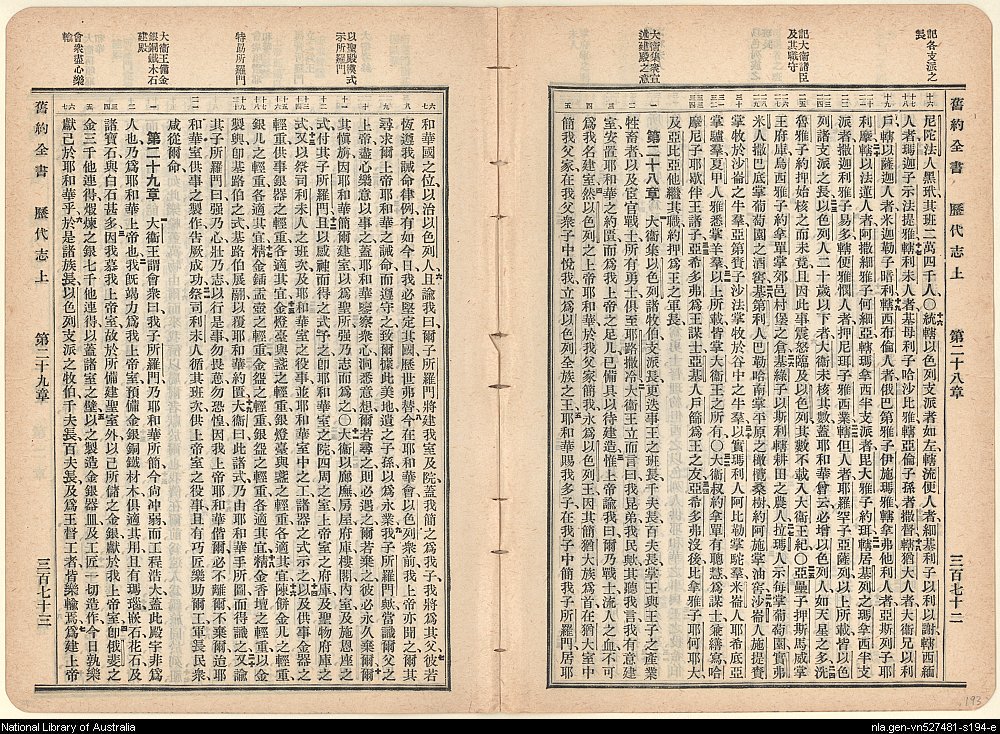 記各支派之長
記大衛諸臣及其職守
大衛集衆宣述建殿之意
舊約全書 歷代志上 第二十八章 三百七十二
尼陀法人黑玳其班二萬四千人〇統轄以色列支派者如左轄流便人者細基利子以利以謝轄西緬
人者瑪迦子示法提雅轄利未人者基母利子哈沙比雅轄亞倫子孫者撒督轄猶大人者大衛兄以利
戶轄以薩迦人者米迦勒子暗利轄西布倫人者俄巴第雅子伊施瑪雅轄拿弗他利人者亞斯列子耶
利摩轄以法蓮人者阿撒細雅子何細亞轄瑪拿西半支派者毘大雅子約珥轄居基列之瑪拿西半支
派者撒迦利雅子易多轄便雅憫人者押尼珥子雅西業轄但人者耶羅罕子亞薩列以上所載皆以色
列諸支派之長以色列人二十歲以下者大衛未核其數蓋耶和華曾云必增以色列人如天星之多洗
魯雅子約押始核之而未竟且因此事震怒臨及以色列其數不載入大衛王紀〇亞疊子押斯馬威掌
王府庫烏西雅子約拿單掌郊邑村堡之倉基綠子以斯利轄耕田之農人拉瑪人示每掌葡萄園實弗
米人撒巴底掌葡萄園之酒窖基第利人巴勒哈南掌平原之橄欖桑樹約阿施掌油窖沙崙人施提賚
掌牧於沙崙之牛羣亞第賚子沙法掌牧於谷中之牛羣以實瑪利人阿比勒掌駝羣米崙人耶希底亞
掌驢羣夏甲人雅悉掌羊羣以上所載皆掌大衛王之所有〇大衛叔約拿單有聰慧爲謀士兼繕寫哈
摩尼子耶歇伴王諸子亞希多弗爲王謀士亞基人戶篩爲王之友亞希多弗沒後比拿雅子耶何耶大
及亞比亞他繼其職約押爲王之軍長
第二十八章 大衛集以色列諸牧伯支派長更迭事王之班長千夫長百夫長掌王與王子之產業
牲畜者以及臣宦戰士所有勇士俱至耶路撒冷大衛王立而言曰我昆弟我民歟其聽我言我有意建
室安置耶和華之約匱而爲我上帝之足几已備其以待建造惟上帝諭我曰爾乃戰士流人之血不可
爲我名建室然以色列之上帝耶和華於我父家簡我永爲以色列王因其簡猶大族爲首在猶大室中
簡我父家在我父衆子中悅我立爲以色列全族之王耶和華賜我多子在我子中簡我子所羅門居耶
以聖殿模式示所羅門
特勗所羅門
大衛王備金銀銅鐵木石建殿
會衆盡心樂輸
和華國之位以治以色列人且諭我曰爾子所羅門將建我室及院蓋我簡之爲我子我將爲其父彼若
恆遵我誡命律例有如今日我必堅定其國歷世弗替今在耶和華會以色列衆前我上帝亦聞之爾其
尋求爾上帝耶和華之誡命而遵守之致爾據此美地遺之子孫以爲永業我子所羅門歟當識爾父之
上帝盡心樂意以事之蓋耶和華鑒察衆心洞悉意想爾若尋之則必遇之爾若棄之彼必永久棄爾爾
其愼旃因耶和華簡爾建室以爲聖所强乃志而爲之〇大衛以廊廡房屋府庫樓閣內室及施恩座之
式付其子所羅門且以感神而得之式予之卽耶和華室之院四周之室上帝室之府庫及聖物府庫之
式又以祭司利未人之班次及耶和華室之役事並耶和華室中之工諸器之式示之以及供事金器之
輕重供事銀器之輕重各適其宜金燈臺與盞之輕重銀燈臺與盞之輕重各適其宜陳餅金几之輕重
銀几之輕重各適其宜精金鍤盂壺之輕重金盌之輕重銀盌之輕重各適其宜精金香壇之輕重以金
製輿卽基路伯之式基路伯展翮以覆耶和華約匱大衛曰此諸式乃由耶和華手所圖而得識之又諭
其子所羅門曰强乃心壯乃志以行是事勿畏葸勿恐惶因我上帝耶和華偕爾必不離爾不棄爾迨耶
和華室供事之製作告厥成功祭司利未人循其班次供上帝室之役事且有巧匠樂助爾工軍長民衆
咸從爾命
第二十九章 大衛王謂會衆曰我子所羅門乃耶和華所簡今尙沖弱而工程浩大蓋此殿宇非爲
人也乃爲耶和華上帝也我旣竭力爲我上帝室預備金銀銅鐵材木俱適其用且有瑪瑙嵌石花石及
諸寶石與白石甚多因我慕我上帝室故於所備建聖室外以己所儲之金銀獻於我上帝室卽俄斐之
金三千他連得煅煉之銀七千他連得以蓋諸室之壁以之製造金銀器皿及工匠一切造作今日孰樂
獻己於耶和華乎於是諸族長以色列支派之牧伯千夫長百夫長及爲王督工者皆樂輸焉爲建上帝
舊約全書 歷代志上 第二十九章 三百七十三
193
National Library of Australia
nla.gen-vn527481-s194-e